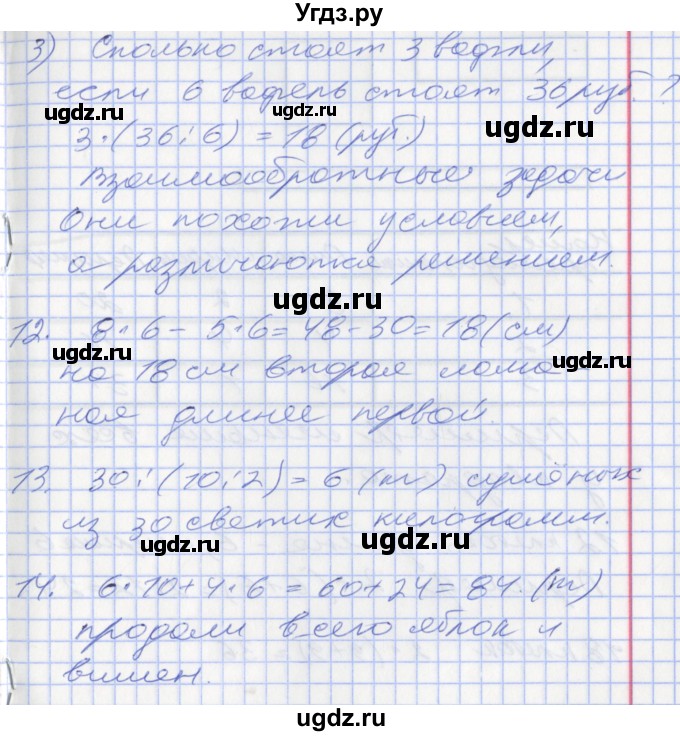 Угдз.ру
3) Сколько стоят 3 вафли,
если 6 вафель стоят 36 руб.?
ugdz.ru ugdz.ru
3·(36:6) = 18 (руб.)
ugdz.ru
Взаимообратные задачи
Они похожи условием,
а различаются решением.
ugdz.ru
12. 8·6 - 5·6 = 48 - 30 = 18 (см)
ugdz.ru ugdz.ru
на 18 см вторая лома-
ная длинее первой
ugdz.ru
13. 30:(10:2) = 6 (кг) сушёных
из 30 свежих килограмм.
ugdz.ru ugdz.ru
14. 6·10+4·6 = 60+24 = 84 (кг)
продали всего яблок и
ugdz.ru ugdz.ru
вишен.
ugdz.ru